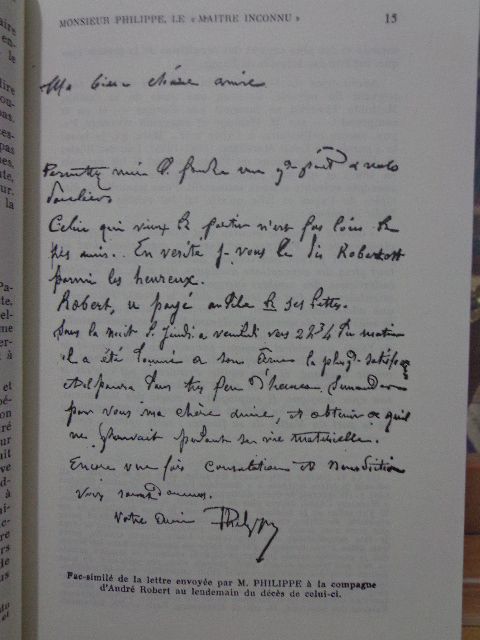 MONSIEUR PHILIPPE, LE « MAITRE INCONNU »
15
Ma bien chère amie
Permettez moi de
Celui qui vient de partir n'est pas loin de
ses amis.. En verité je vous le dis Robert est
parmi les heureux.
Robert, a payé au delà de ses dettes.
Dans la nuit de jeudi a vendredi vers 2h 3/4 du matin
il a été donné a son âme la plus grde satisfac
et il pourra dans très peu d'heures demander
pour vous ma chère amie, et obtenir ce qu'il
ne pouvait pendant sa vie materielle.
Encore une fois consolation et bénédiction
vous sont données.
Votre ami Philippe
Fac-similé de la lettre envoyée par M. PHILIPPE à la compagne
d'André Robert au lendemain du décès de celui-ci.